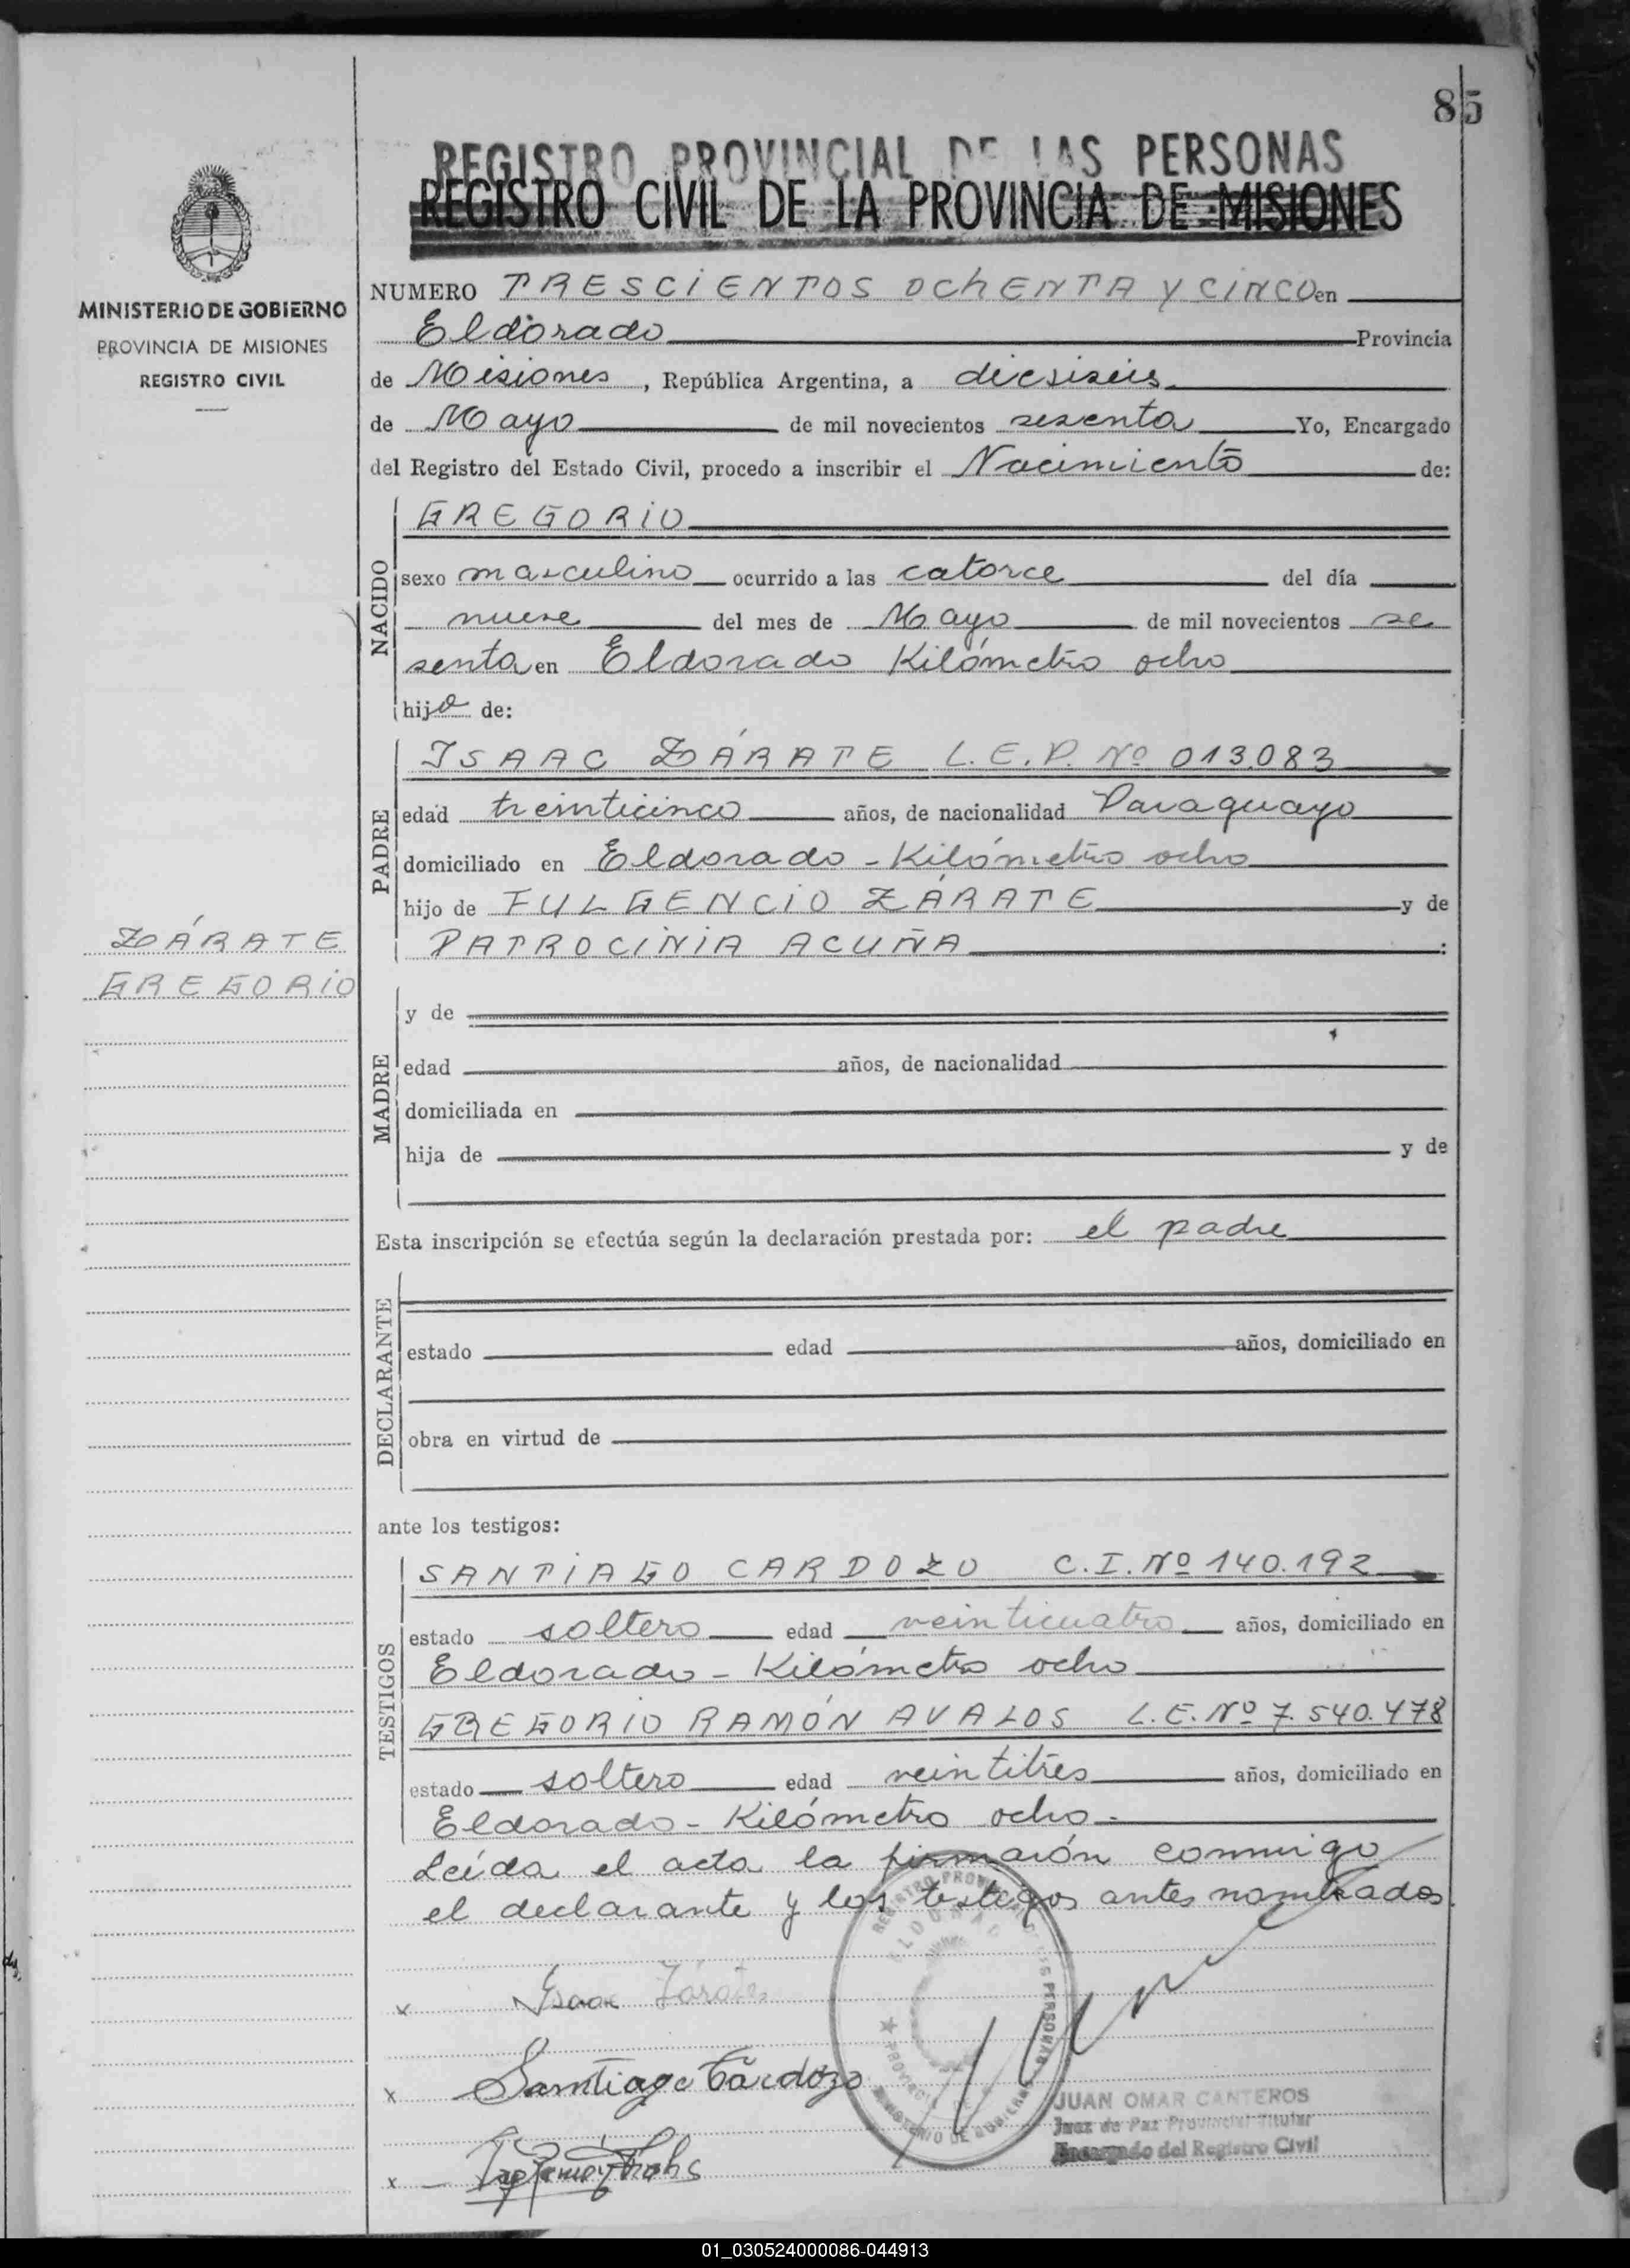 85
REGISTRO PROVINCIAL DE LAS PERSONAS
REGISTRO CIVIL DE LA PROVINCIA DE MISIONES
MINISTERIO DE GOBIERNO
PROVINCIA DE MISIONES
REGISTRO CIVIL
NUMERO TRESCIENTOS OCHENTA Y CINCO en
Eldorado Provincia
de Misiones, República Argentina, a diesiseis
de Mayo de mil novecientos sesenta Yo, Encargado
del Registro del Estado Civil, procedo a inscribir el Nacimiento de:
NACIDO
GREGORIO
sexo masculino ocurrido a las catorce del día
nueve del mes de Mayo de mil novecientos se
senta en Eldorado Kilómetro ocho
hijo de:
PADRE
ISAAC ZÁRATE L.E.P. Nº 013.083
edad treinticinco años, de nacionalidad Paraguayo
domiciliado en Eldorado - Kilómetro ocho
hijo de FULGENCIO ZÁRATE y de
PATROCINIA ACUÑA :
ZÁRATE
GREGORIO
MADRE
y de
edad años, de nacionalidad
domiciliada en
hija de y de
Esta inscripción se efectúa según la declaración prestada por: el padre
DECLARANTE
estado edad años, domiciliado en
obra en virtud de
ante los testigos:
TESTIGOS
SANTIAGO CARDOZO C.I. Nº 140.192
estado soltero edad veinticuatro años, domiciliado en
Eldorado - Kilómetro ocho
GREGORIO RAMÓN AVALOS L.E. Nº 7.540.478
estado soltero edad veintitres años, domiciliado en
Eldorado - Kilómetro ocho.
Leída el acta la firmarón conmigo
el declarante y los testigos antes nombrados.
x Isaac Zárate
x Santiago Cardozo
x
JUAN OMAR CANTEROS
Juez de Paz Provincial Titular
Encargado del Registro Civil
01_030524000086-044913